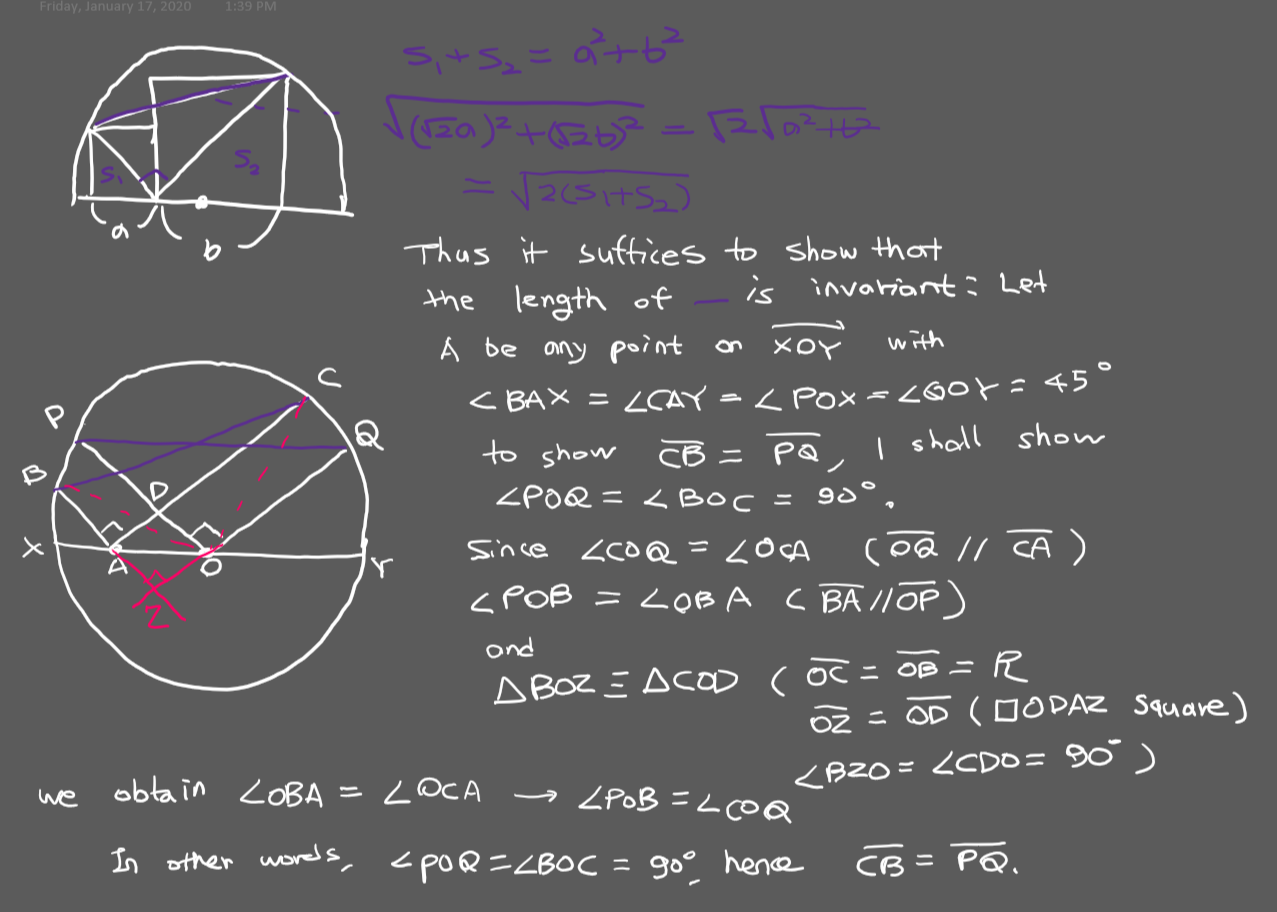 Friday, January 17, 2020 1:39 PM
S₁ + S₂ = a² + b²
√((√2a)² + (√2b)²) = √2√(a² + b²)
= √(2(S₁+S₂))
S₁
S₂
a
b
Thus it suffices to show that
the length of — is invariant: Let
A be any point on XOY with
∠BAX = ∠CAY = ∠POX = ∠QOY = 45°
to show CB = PQ, I shall show
∠POQ = ∠BOC = 90°.
Since ∠COQ = ∠OCA (OQ // CA)
∠POB = ∠OBA (BA // OP)
and
△BOZ ≡ △COD (OC = OB = R
OZ = OD (□ODAZ square)
∠BZO = ∠CDO = 90°)
C
P
Q
B
D
X
A
O
Y
Z
we obtain ∠OBA = ∠OCA → ∠POB = ∠COQ
In other words, ∠POQ = ∠BOC = 90°, hence CB = PQ.